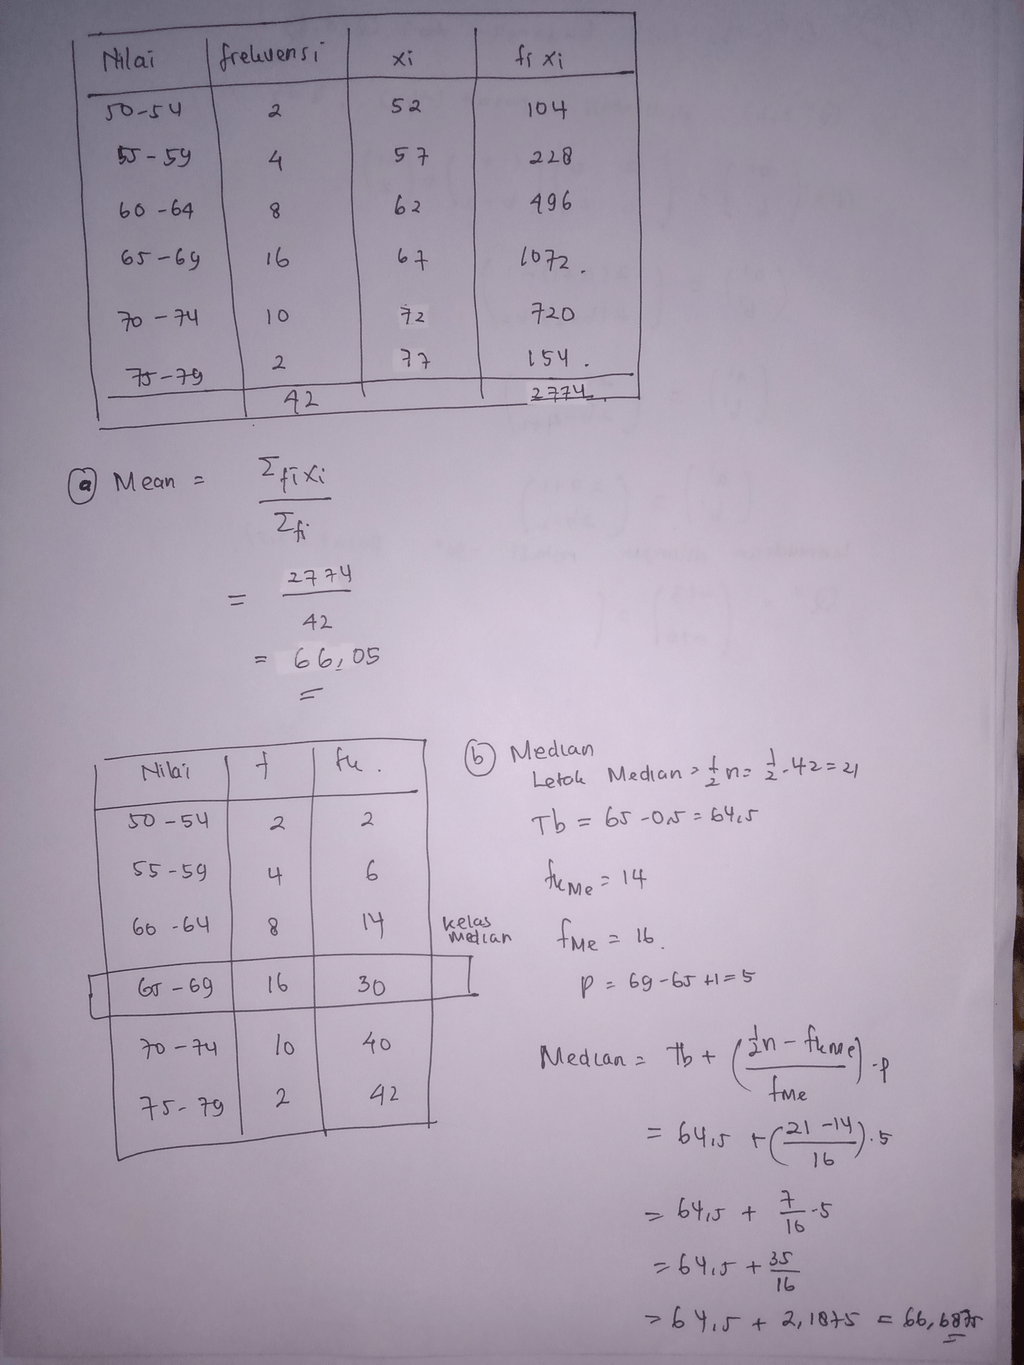 Nilai frekuensi xi fi xi
50-54 2 52 104
55-59 4 57 228
60-64 8 62 496
65-69 16 67 1072.
70-74 10 72 720
75-79 2 77 154.
42 2774.
a Mean = Σfi xi
Σfi
= 2774
42
= 66,05
Nilai f fk.
50-54 2 2
55-59 4 6
60-64 8 14
65-69 16 30
70-74 10 40
75-79 2 42
kelas
median
b Median
Letak Median = 1/2 n = 1/2 . 42 = 21
Tb = 65 - 0,5 = 64,5
fkMe = 14
fMe = 16.
P = 69-65+1 = 5
Median = Tb + (1/2 n - fkMe / fMe) . P
= 64,5 + (21-14 / 16) . 5
= 64,5 + 7/16 . 5
= 64,5 + 35/16
= 64,5 + 2,1875 = 66,6875